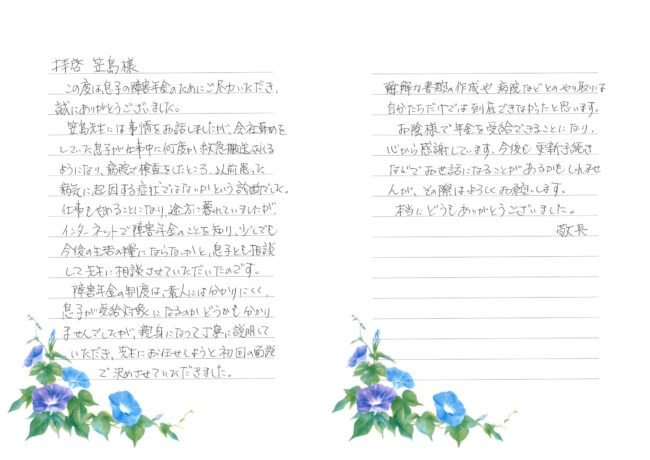 拝啓 笠島様
この度は息子の障害年金のためにご尽力いただき、
誠にありがとうございました。
笠島先生には事情をお話しましたが、会社勤めを
していた息子が仕事中に何度か救急搬送される
ようになり、病院で検査をしたところ、以前患った
病気に起因する症状ではないかという診断でした。
仕事もやめることになり、途方に暮れていましたが、
インターネットで障害年金のことを知り、少しでも
今後の生活の糧にならなかと、息子とも相談
して先生に相談させていただいたのです。
障害年金の制度は、素人には分かりにくく、
息子が受給対象になるのかどうかも分かり
ませんでしたが、親身になって丁寧に説明して
いただき、先生にお任せしようと初回の面談
で決めさせていただきました。
難解な書類の作成や病院などとのやり取りは
自分たちだけでは到底できなかったと思います。
お陰様で年金を受給できることになり、
心から感謝しています。今後も更新手続き
などでお世話になることがあるかもしれませ
んが、その際はよろしくお願いします。
本当にどうもありがとうございました。
敬具